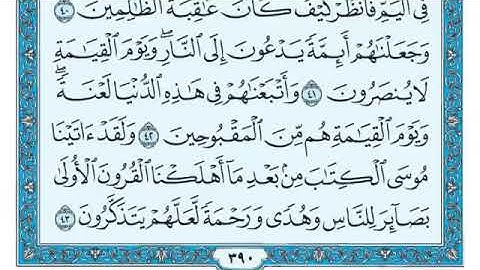 فِى ٱلۡيَمِّۖ فَٱنظُرۡ كَيۡفَ كَانَ عَٰقِبَةُ ٱلظَّٰلِمِينَ ٤٠
وَجَعَلۡنَٰهُمۡ أَئِمَّةٗ يَدۡعُونَ إِلَى ٱلنَّارِۖ وَيَوۡمَ ٱلۡقِيَٰمَةِ
لَا يُنصَرُونَ ٤١ وَأَتۡبَعۡنَٰهُمۡ فِى هَٰذِهِ ٱلدُّنۡيَا لَعۡنَةٗۖ
وَيَوۡمَ ٱلۡقِيَٰمَةِ هُم مِّنَ ٱلۡمَقۡبُوحِينَ ٤٢ وَلَقَدۡ ءَاتَيۡنَا
مُوسَى ٱلۡكِتَٰبَ مِنۢ بَعۡدِ مَآ أَهۡلَكۡنَا ٱلۡقُرُونَ ٱلۡأُولَىٰ
بَصَآئِرَ لِلنَّاسِ وَهُدٗى وَرَحۡمَةٗ لَّعَلَّهُمۡ يَتَذَكَّرُونَ ٤٣
٣٩٠